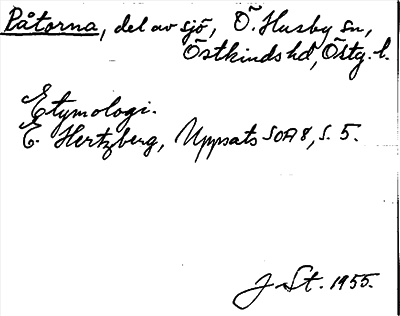 Påtorna, del av sjö, Ö. Husby sn,
Östkinds hd, Östg. l.
Etymologi.
E. Hertzberg, Uppsats SOA 8, s. 5.
J. St. 1955.